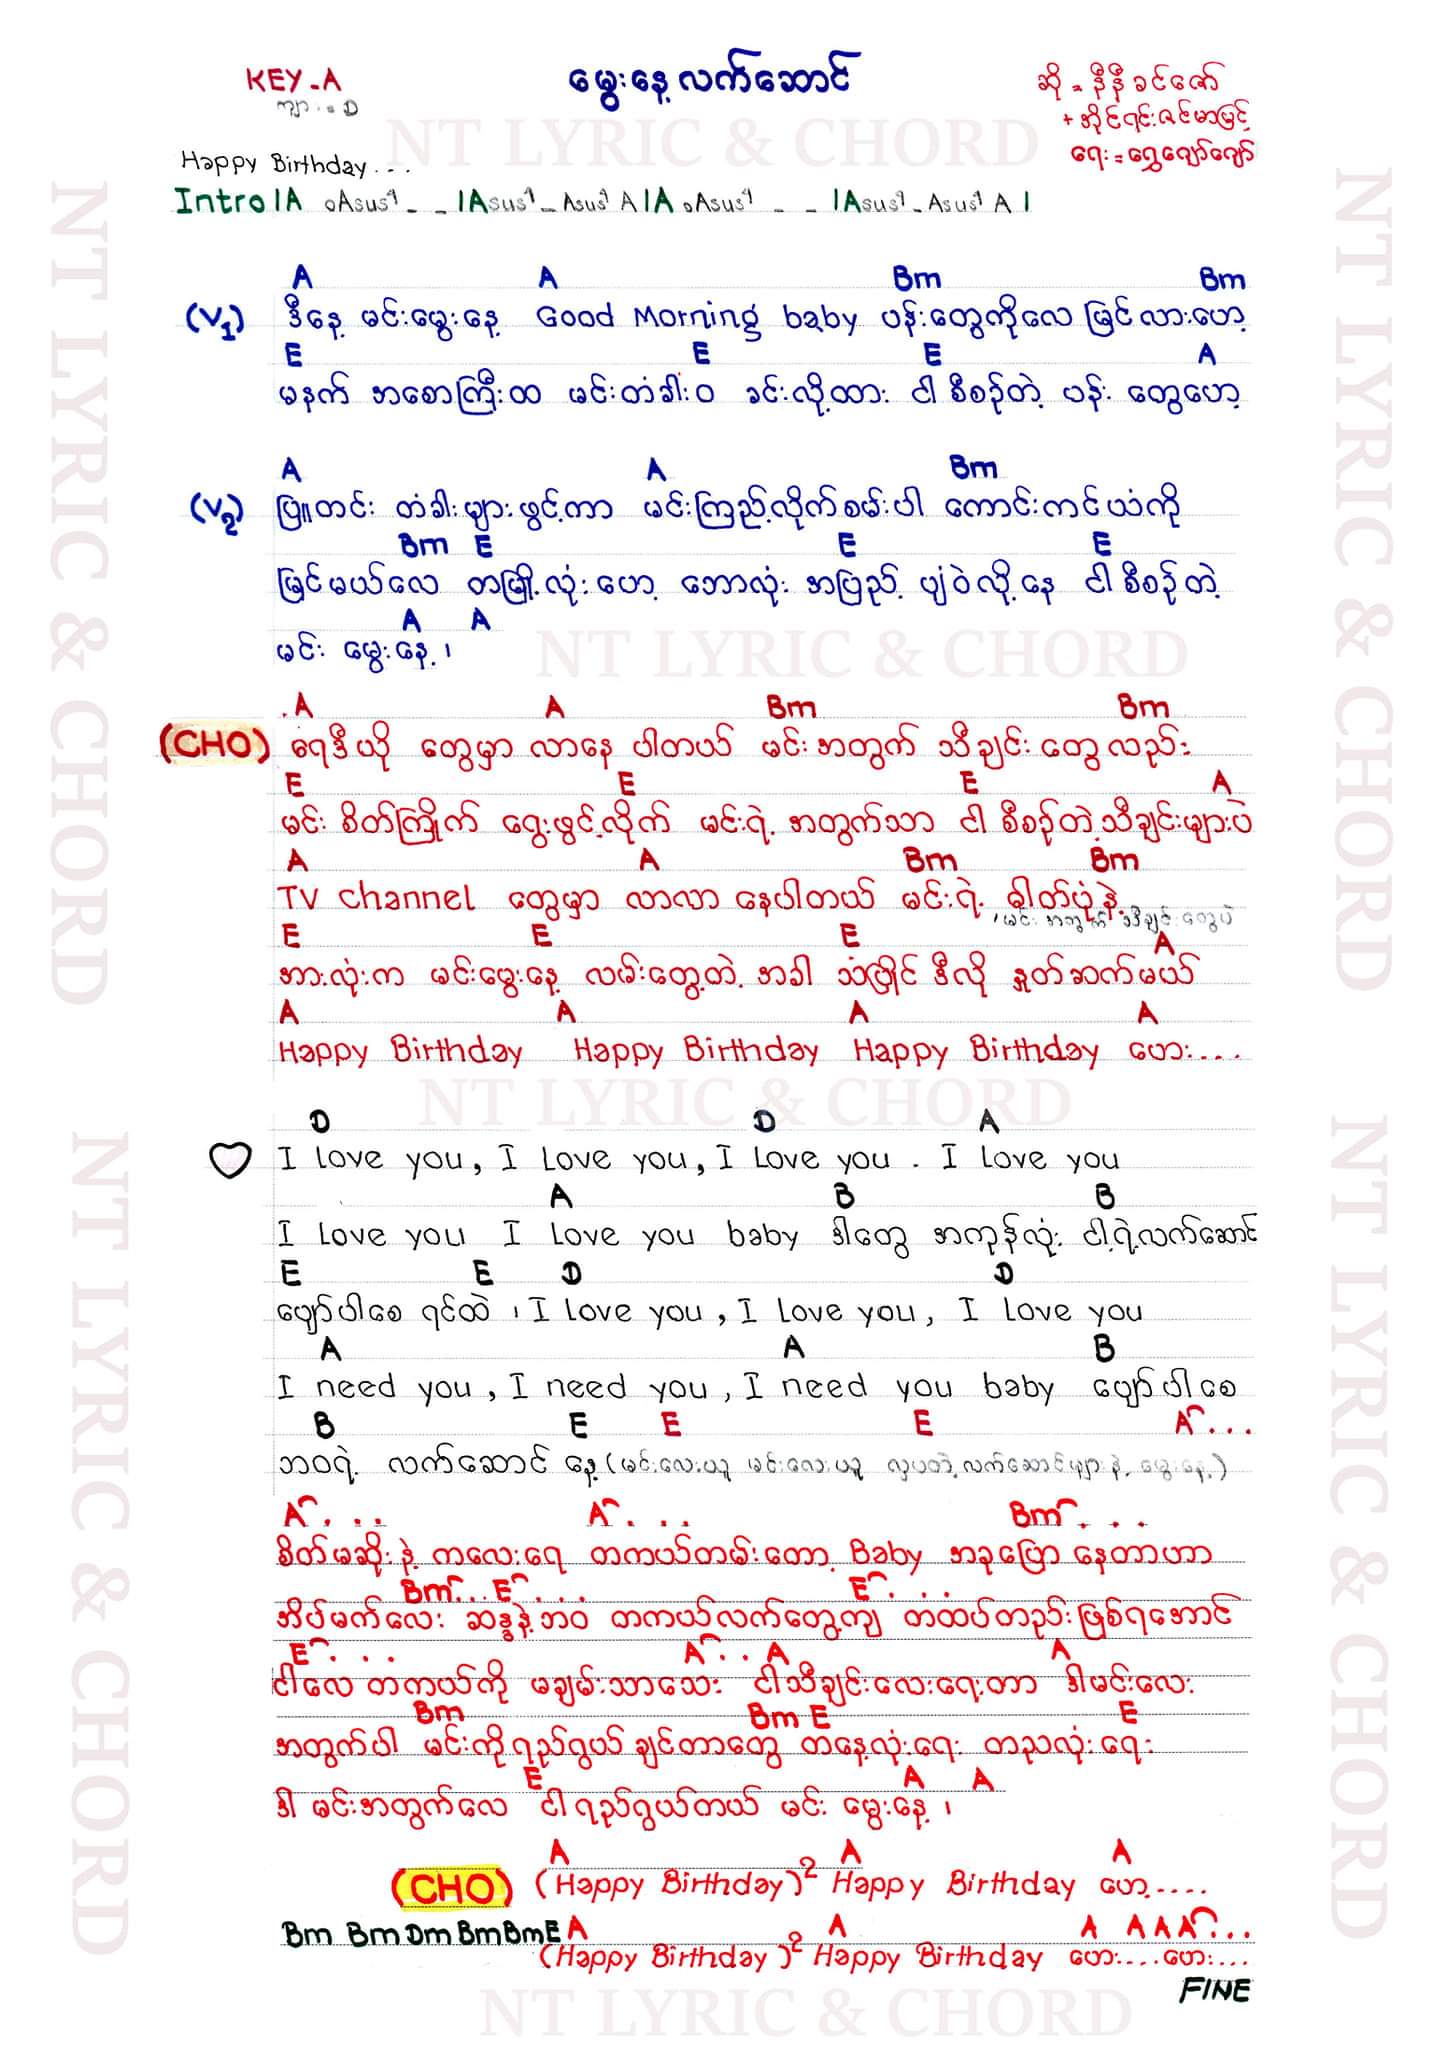 KEY-A
မွေးနေ့လက်ဆောင်
ဆို = နီနီခင်ဇော်
ကျား = D
+ အိုင်ရင်းဇင်မာမြင့်
ရေး = ရွှေဂျော်ဂျော်
Happy Birthday...
Intro |A oAsus4 - - |Asus4 - Asus4 A |A oAsus4 - - |Asus4 - Asus4 A |
A A Bm Bm
(V1) ဒီနေ့ မင်းမွေးနေ့ Good Morning baby ပန်းတွေကိုလေ မြင်လားဟော့
E E E A
မနက် အစောကြီးထ မင်းတံခါးဝ ခင်းလို့ထား ငါစီစဉ်တဲ့ ပန်း တွေဟော့
A A Bm
(V2) ပြူတင်း တံခါးများဖွင့်ကာ မင်းကြည့်လိုက်စမ်းပါ ကောင်းကင်ယံကို
Bm E E E
မြင်မယ်လေ တမြို့လုံးဟော့ ဘောလုံး အပြည့် ပျံဝဲလို့နေ ငါစီစဉ်တဲ့
A A
မင်း မွေးနေ့၊
A A Bm Bm
(CHO) ရေဒီယို တွေမှာ လာနေ ပါတယ် မင်းအတွက် သီချင်းတွေလည်း
E E E A
မင်း စိတ်ကြိုက် ရွေးဖွင့်လိုက် မင်းရဲ့ အတွက်သာ ငါ စီစဉ်တဲ့သီချင်းများပဲ
A A Bm Bm
TV Channel တွေမှာ လာလာ နေပါတယ် မင်းရဲ့ ဓါတ်ပုံနဲ့
၊ မင်း အတွက် သီချင်းတွေပဲ
E E E A
အားလုံးက မင်းမွေးနေ့ လမ်းတွေ့တဲ့ အခါ သံပြိုင် ဒီလို နှုတ်ဆက်မယ်
A A A A
Happy Birthday Happy Birthday Happy Birthday ဟေး....
D D A
♡ I Love you, I Love you, I Love you . I Love you
A B B
I Love you I Love you baby ဒါတွေ အကုန်လုံး ငါ့ရဲ့လက်ဆောင်
E E D D
ပျော်ပါစေ ရင်ထဲ ၊ I Love you, I Love you, I Love you
A A B
I need you, I need you, I need you baby ပျော်ပါစေ
B E E E A...
ဘဝရဲ့ လက်ဆောင် နေ့ (မင်းလေးယူ မင်းလေးယူ လှပတဲ့လက်ဆောင်များနဲ့ မွေးနေ့)
A... A... Bm...
စိတ်မဆိုးနဲ့ ကလေးရေ တကယ်တမ်းတော့ Baby အခုပြောနေတာဟာ
Bm... E... E...
အိပ်မက်လေး ဆန္ဒနဲ့ဘဝ တကယ်လက်တွေ့ကျ တထပ်တည်းဖြစ်ရအောင်
E... A.. A A
ငါလေ တကယ်ကို မချမ်းသာသေး ငါသီချင်းလေးရေးတာ ဒါမင်းလေး
Bm Bm E E
အတွက်ပါ မင်းကိုရည်ရွယ်ချင်တာတွေ တနေ့လုံးရေး တညလုံးရေး
E A A
ဒါ မင်းအတွက်လေ ငါရည်ရွယ်တယ် မင်း မွေးနေ့ ၊
A A A
(CHO) (Happy Birthday)2 Happy Birthday ဟေ့.....
Bm Bm Dm Bm Bm E A A A A A A...
(Happy Birthday)2 Happy Birthday ဟေး....ဟေး....
FINE
NT LYRIC & CHORD
NT LYRIC & CHORD
NT LYRIC & CHORD
NT LYRIC & CHORD
NT LYRIC & CHORD
NT LYRIC & CHORD
NT LYRIC & CHORD
NT LYRIC & CHORD